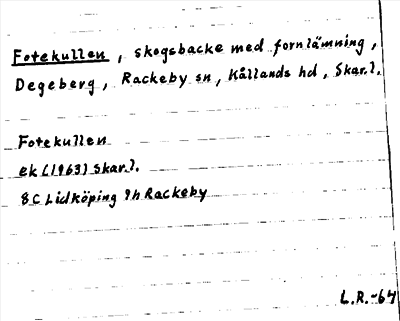 Fotekullen, skogsbacke med fornlämning,
Degeberg, Rackeby sn, Kållands hd, Skar.l.
Fotekullen
ek (1963) Skar.l.
8C Lidköping 9h Rackeby
L.R.-64